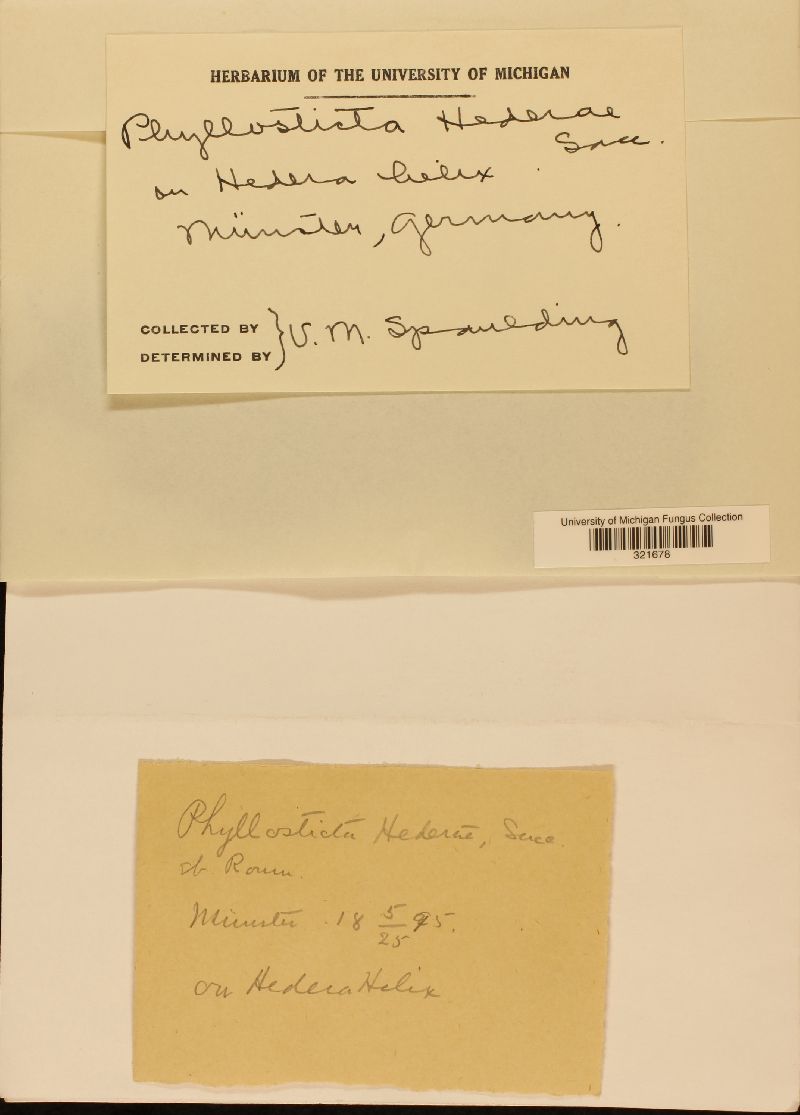 HERBARIUM OF THE UNIVERSITY OF MICHIGAN
Phyllosticta Hederae
Sacc.
on Hedera helix
Münster, Germany.
COLLECTED BY
DETERMINED BY
} V. M. Spaulding
University of Michigan Fungus Collection
321678
Phyllosticta Hederae, Sacc.
et Roum.
Münster 18 5/25 95.
on Hedera Helix